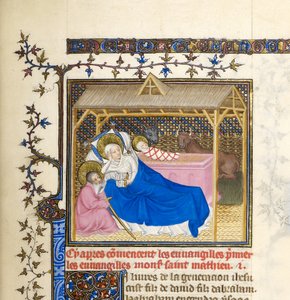 Cy apres cõmencent les euuangiles. premier
les euuangiles mons. saint mathieu. i.
Liures de la generacion ihesu
crist filz de dauid filz dabraham